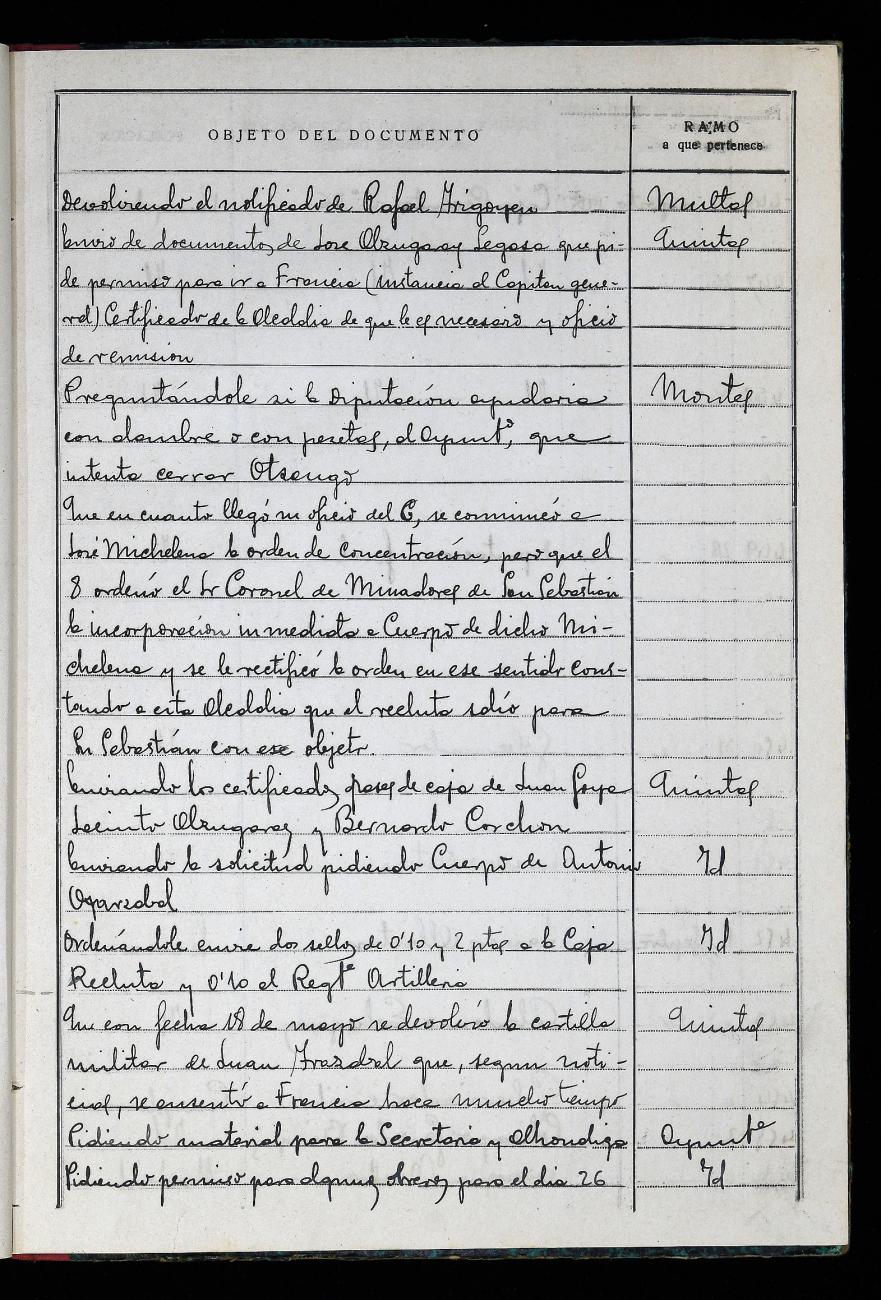 OBJETO DEL DOCUMENTO
RAMO
a que pertenece
Devolviendo el notificado de Rafael Irigoyen Multas
Envio de documentos de Jose Olzugaray Legasa que pi- Quintas
de permiso para ir a Francia (instancia al Capitan gene-
ral) Certificado de la Alcaldia de que le es necesario y oficio
de remision
Preguntándole si la Diputación ayudaria Montes
con alambre o con pesetas, al Ayuntº, que
intenta cerrar Otsango
Que en cuanto llegó su oficio del 6, se comunicó a
José Michelena la orden de concentración, pero que el
8 ordenó el Sr Coronel de Minadores de San Sebastián
la incorporación inmediata a Cuerpo de dicho Mi-
chelena y se le rectificó la orden en ese sentido cons-
tando a esta Alcaldia que el recluta salió para
Sn Sebastián con ese objeto.
Enviando los certificados pases de caja de Juan Goya Quintas
Jacinto Olzugaray y Bernardo Corchon
Enviando la solicitud pidiendo Cuerpo de Antonio Id
Oyarzabal
Ordenándole envie dos sellos de 0'10 y 2 ptas a la Caja Id
Recluta y 0'10 al Regtº Artilleria
Que con fecha 18 de mayo se devolvió la cartilla Quintas
militar de Juan Irazabal que, segun noti-
cias, se ausentó a Francia hace mucho tiempo
Pidiendo material para la Secretaria y Alhondiga Ayuntº
Pidiendo permiso para algunas obreros para el dia 26 Id